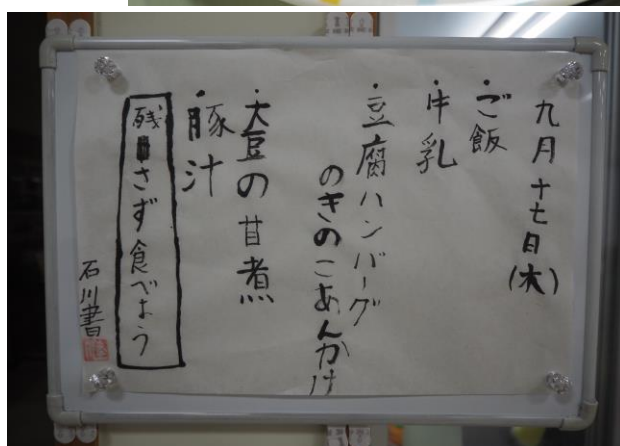 九月十七日(木)
・ご飯
・牛乳
・豆腐ハンバーグ
のきのこあんかけ
・大豆の甘煮
・豚汁
残さず食べよう
石川書